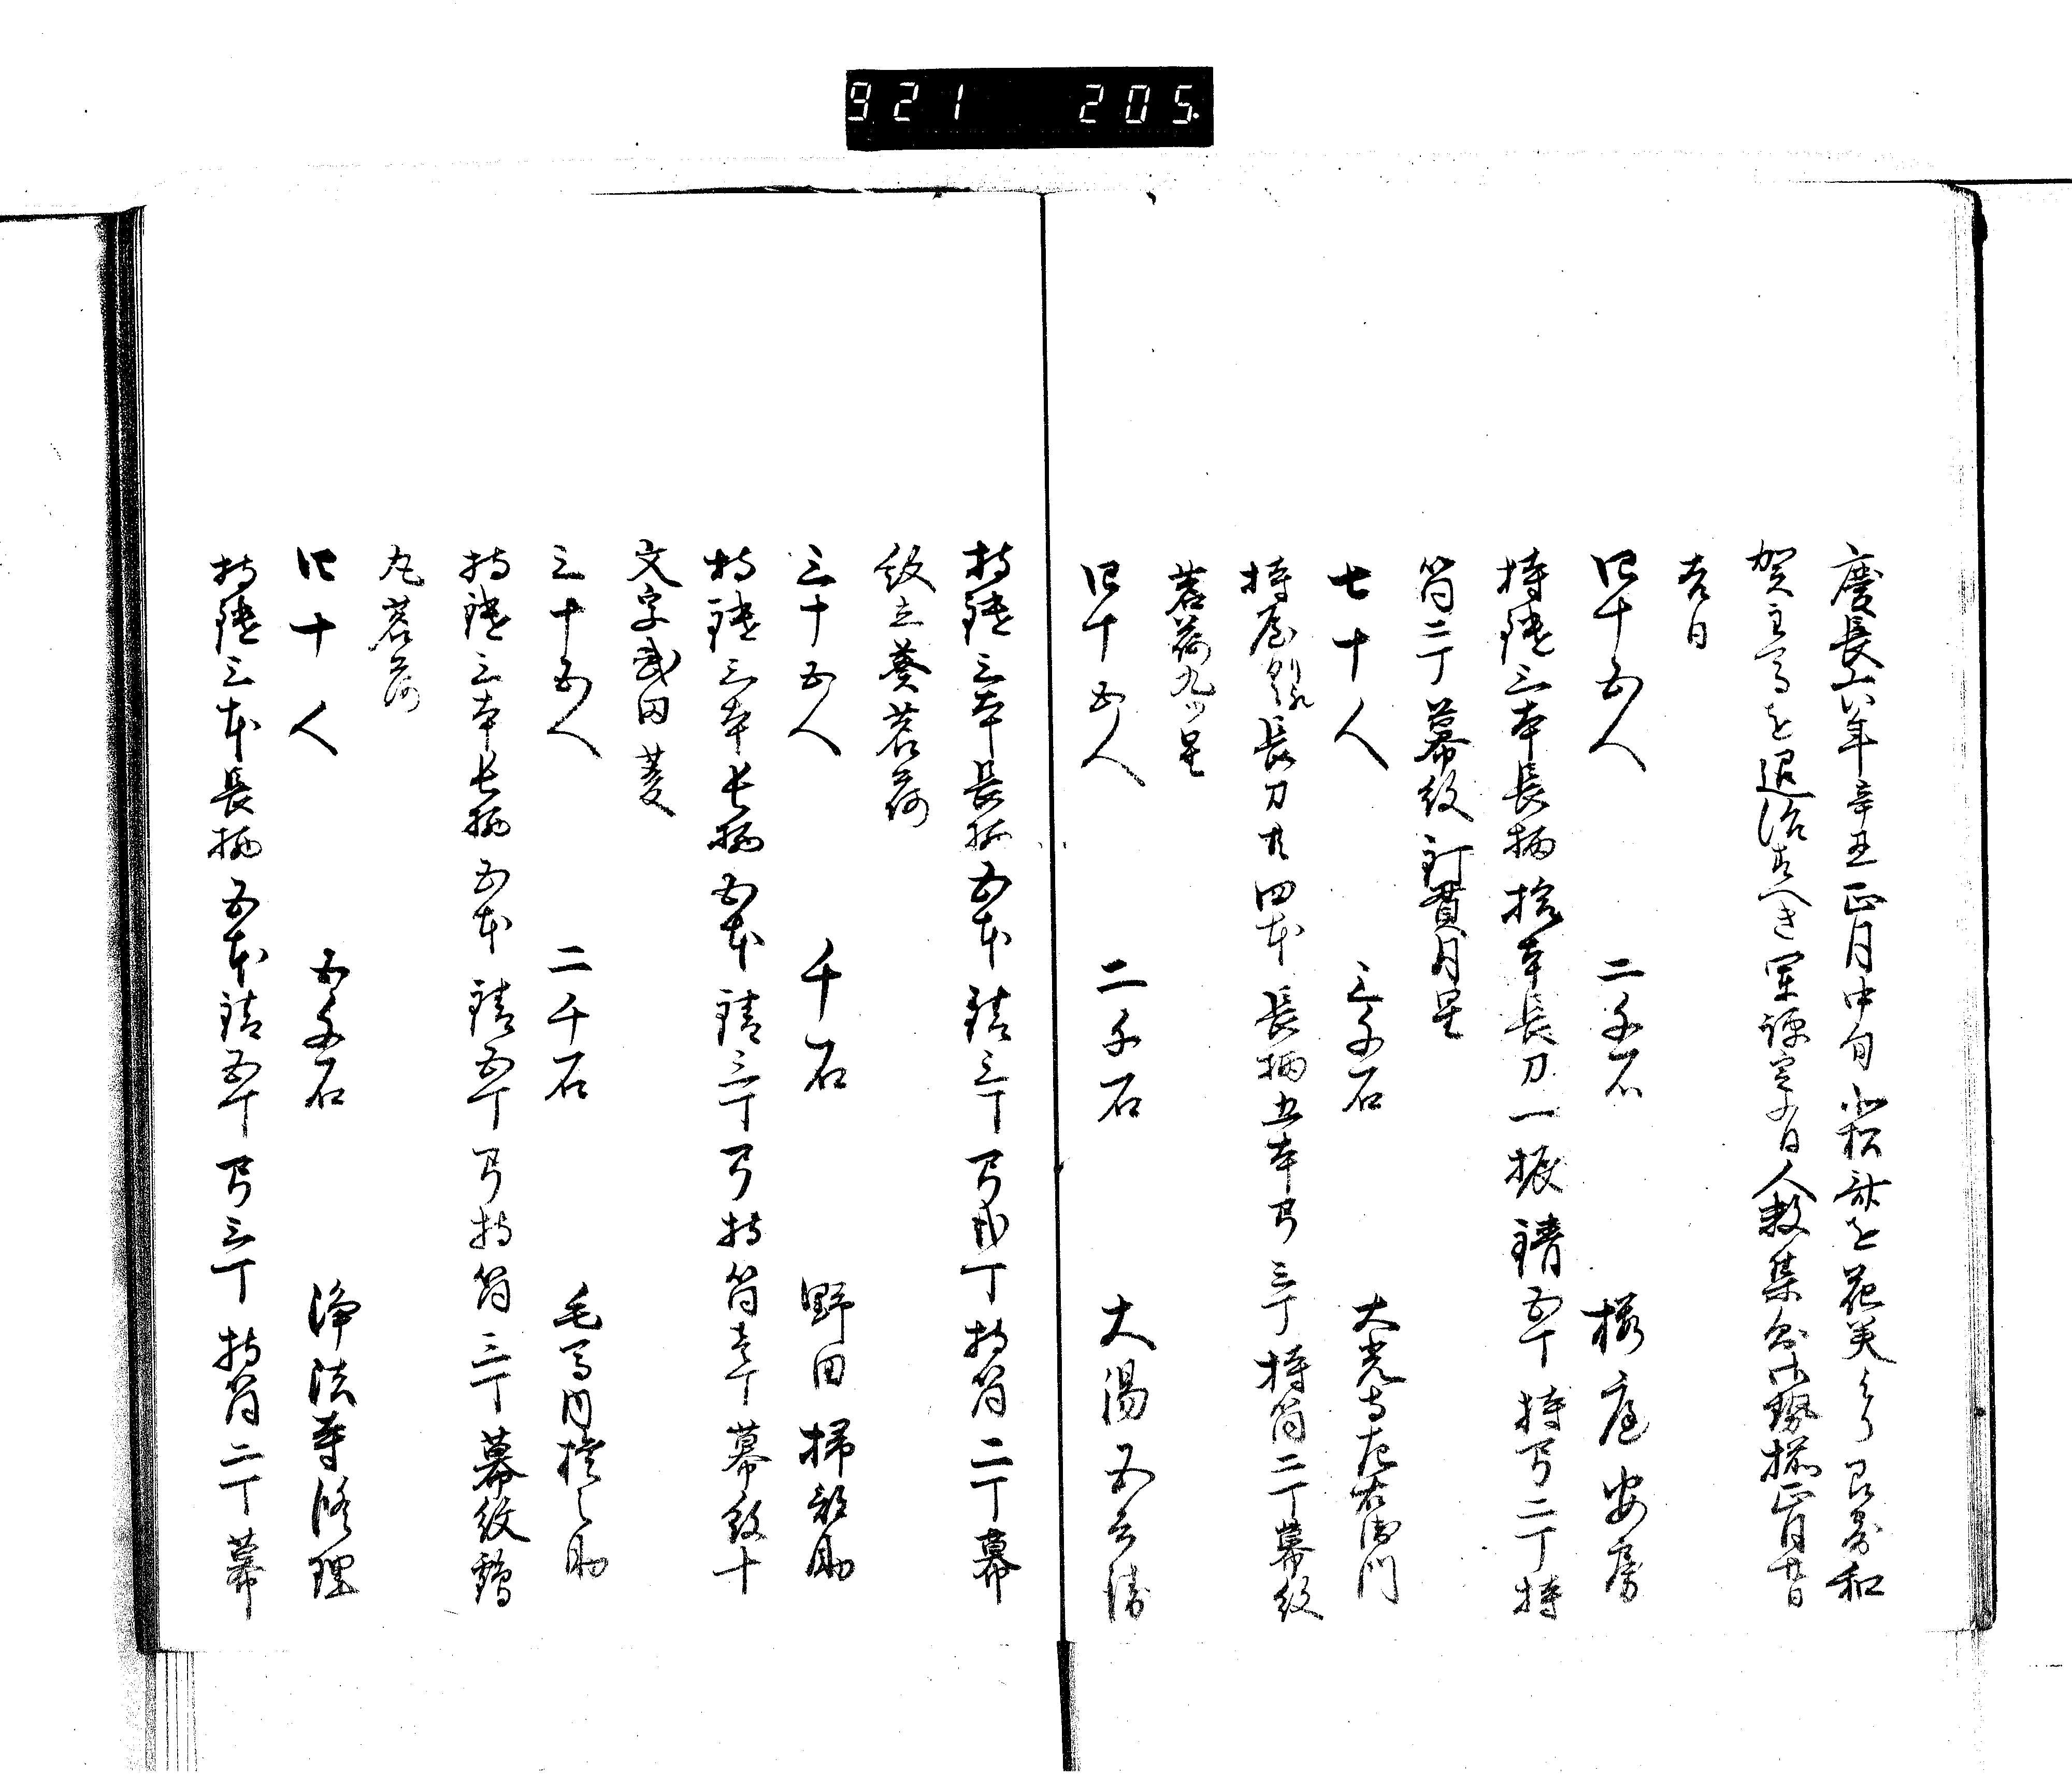 921 205
慶長六年辛丑正月中旬北松斎を花巻より召寄和
賀主馬を退治すへき軍評定有日人数集合御勢揃正月廿日
吉日
四十五人 二千石 桜庭安房
持鑓三本長柄拾本長刀一振鉄五丁持弓二丁持
筒二丁幕紋釘貫月星
七十人 三千石 大光寺左衛門
長刀共四本長柄五本弓三丁持筒二丁幕紋
茗荷九ツ星
四十五人 二千石 大湯五兵衛
持鑓三本長柄五本鉄三丁弓弐丁持筒二丁幕
紋立葵茗荷
三十五人 千石 野田掃部助
持鑓三本長柄五本鉄三丁弓持筒壱丁幕紋十
文字武田菱
三十五人 二千石 毛馬内権之助
持鑓三本長柄五本鉄五丁弓持筒三丁幕紋鶴
丸茗荷
四十人 五千石 浄法寺修理
持鑓三本長柄五本鉄五丁弓三丁持筒二丁幕